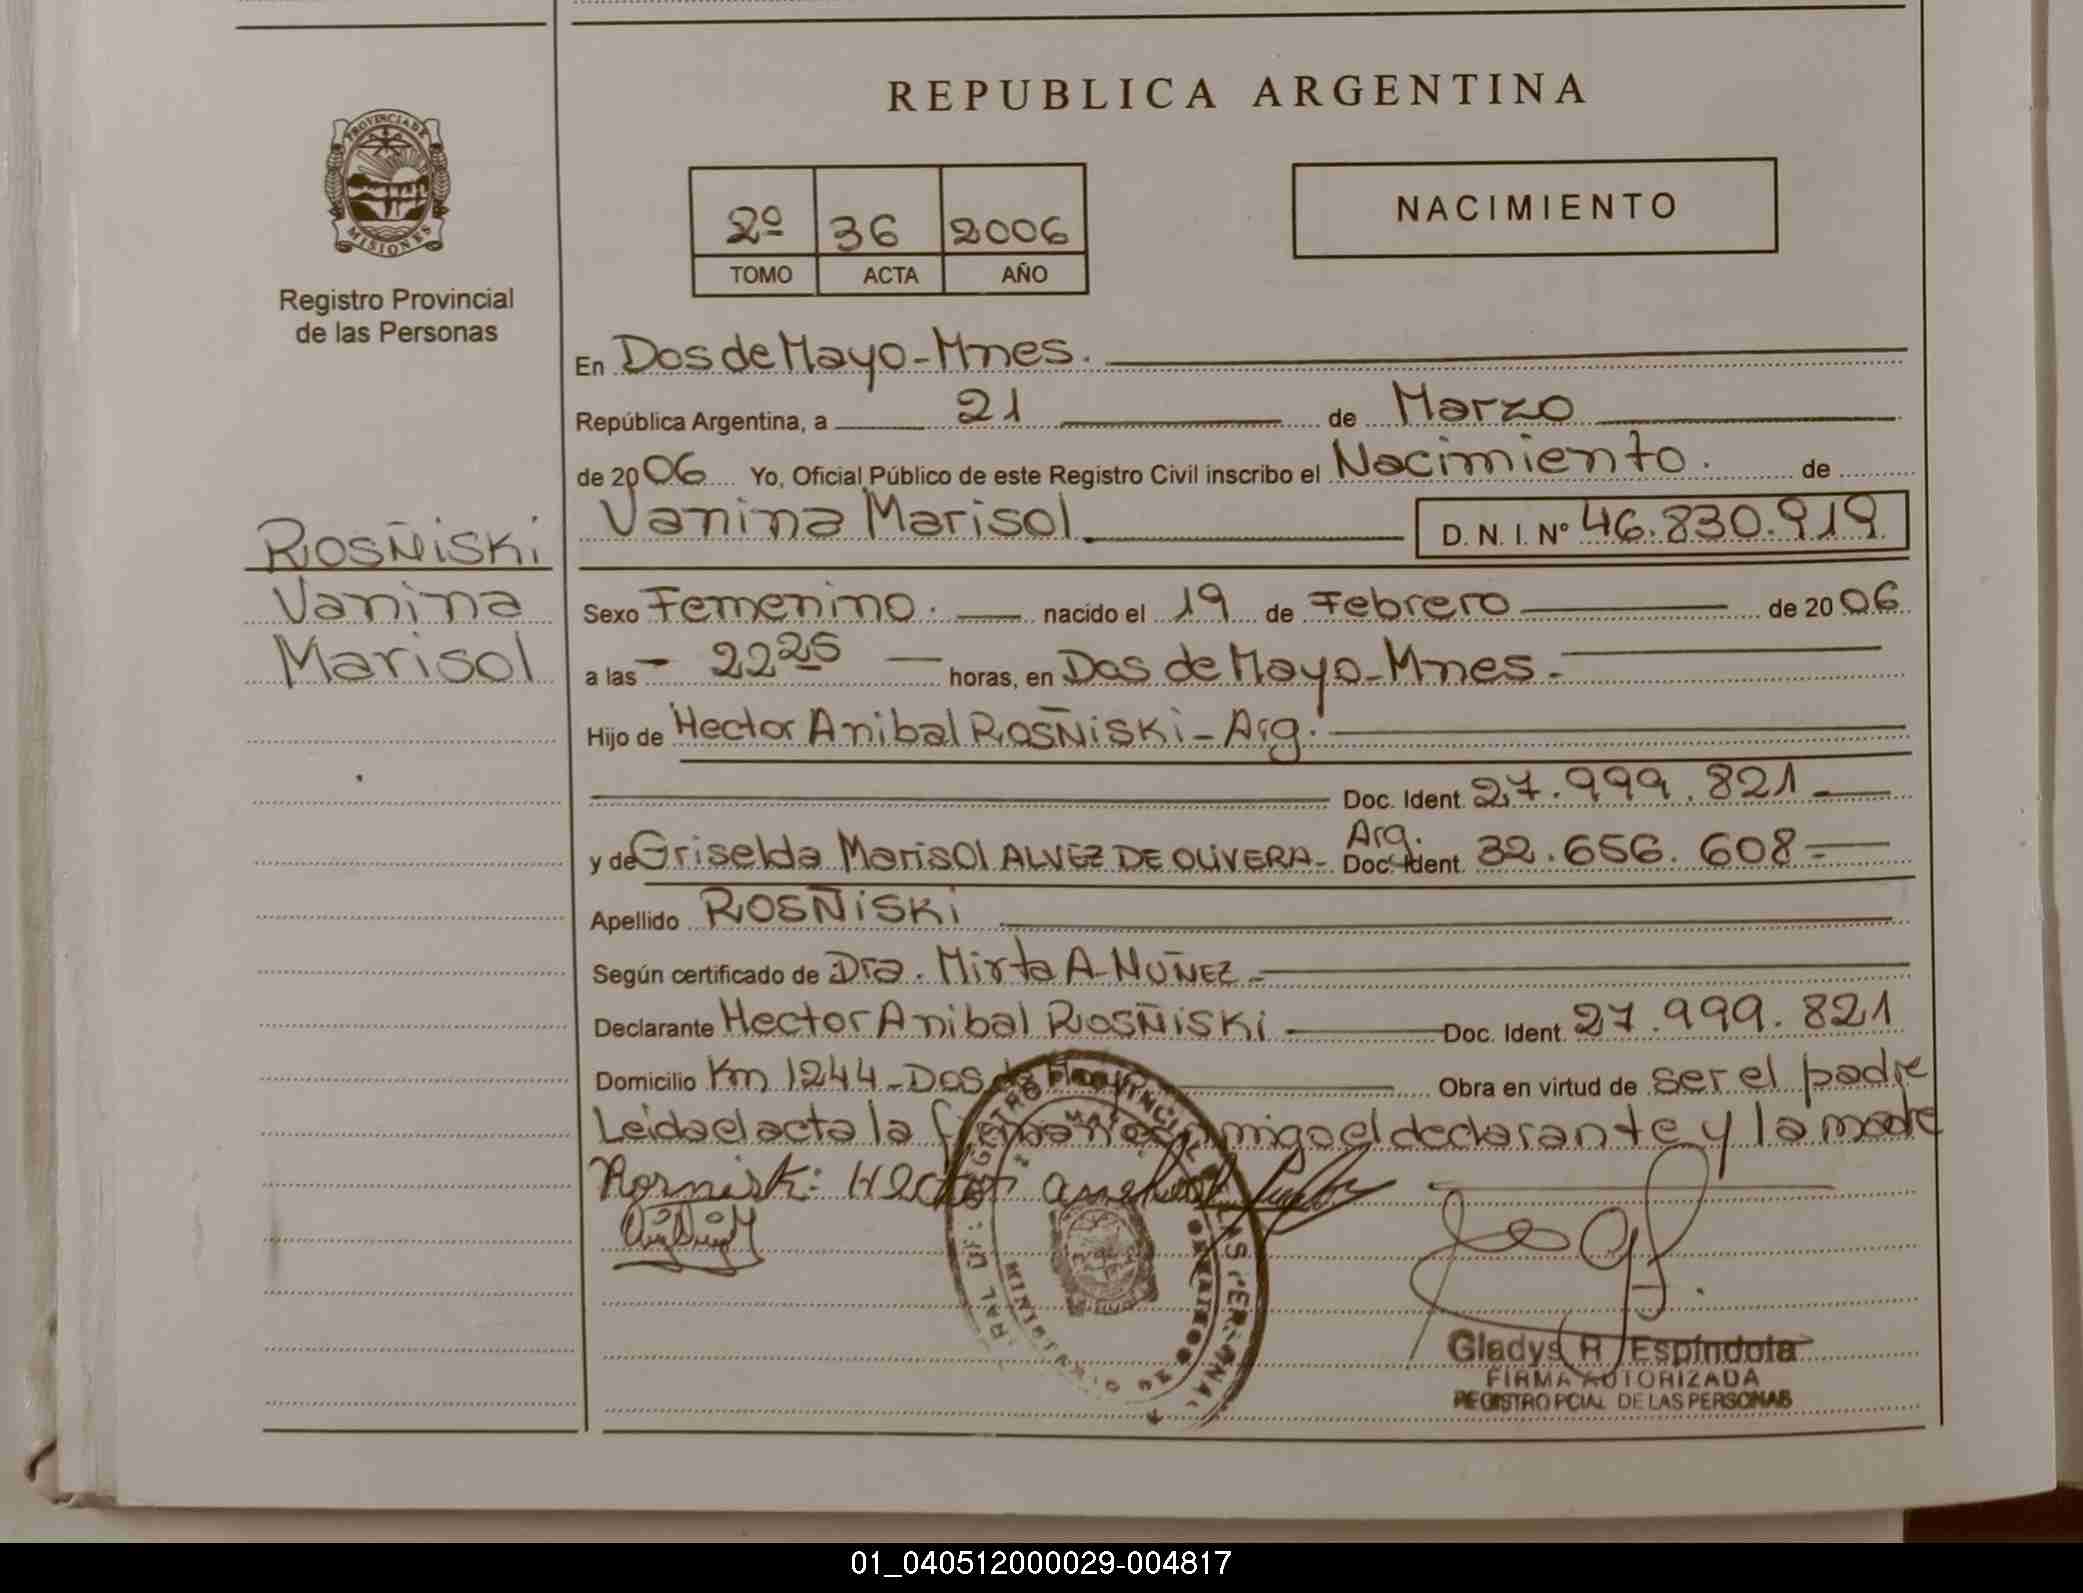 REPUBLICA ARGENTINA
PROVINCIA DE
MISIONES
Registro Provincial
de las Personas
2º 36 2006
TOMO ACTA AÑO
NACIMIENTO
En Dos de Mayo-Mnes.
República Argentina, a 21 de Marzo
de 2006 Yo, Oficial Público de este Registro Civil inscribo el Nacimiento. de
Vanina Marisol D. N. I. Nº 46.830.919
ROSÑiSKi
Vanina
Marisol
Sexo Femenino. nacido el 19 de Febrero de 2006
a las - 22 25 horas, en Dos de Mayo-Mnes.-
Hijo de Hector Anibal ROSÑiSKi - Arg.
Doc. Ident. 27.999.821
y de Griselda Marisol ALVEZ DE OLiVERA- Arg. Doc. Ident. 32.656.608=
Apellido ROSÑiSKi
Según certificado de Dra. Mirta A-NUÑEZ-
Declarante Hector Anibal ROSÑiSKi Doc. Ident. 27.999.821
Domicilio Km 1244-Dos de Mayo Obra en virtud de ser el padre
Leida el acta la firman conmigo el declarante y la madre
Hector
Gladys R Espíndola
FIRMA AUTORIZADA
REGISTRO PCIAL DE LAS PERSONAS
01_040512000029-004817